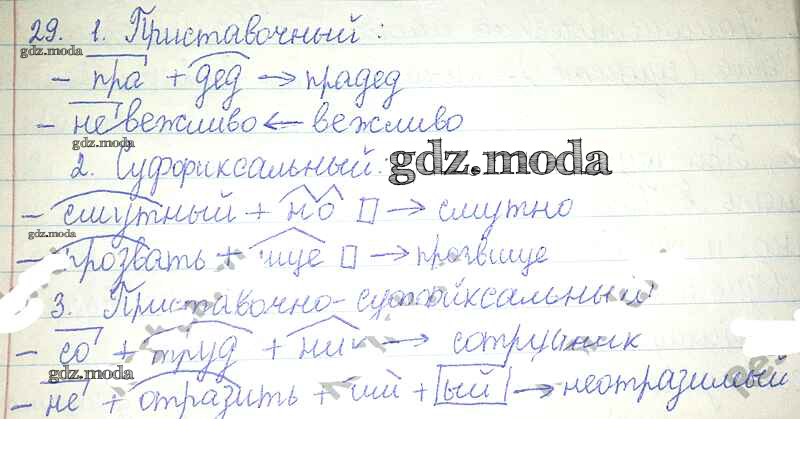 29. 1. Приставочный:
gdz.moda
- пра + дед → прадед
- невежливо ← вежливо
gdz.moda
2. Суффиксальный:
gdz.moda
- смутный + но □ → смутно
gdz.moda
- прозвать + ище □ → прозвище
3. Приставочно-суффиксальный
- со + труд + ник → сотрудник
gdz.moda
- не + отразить + им + ый → неотразимый